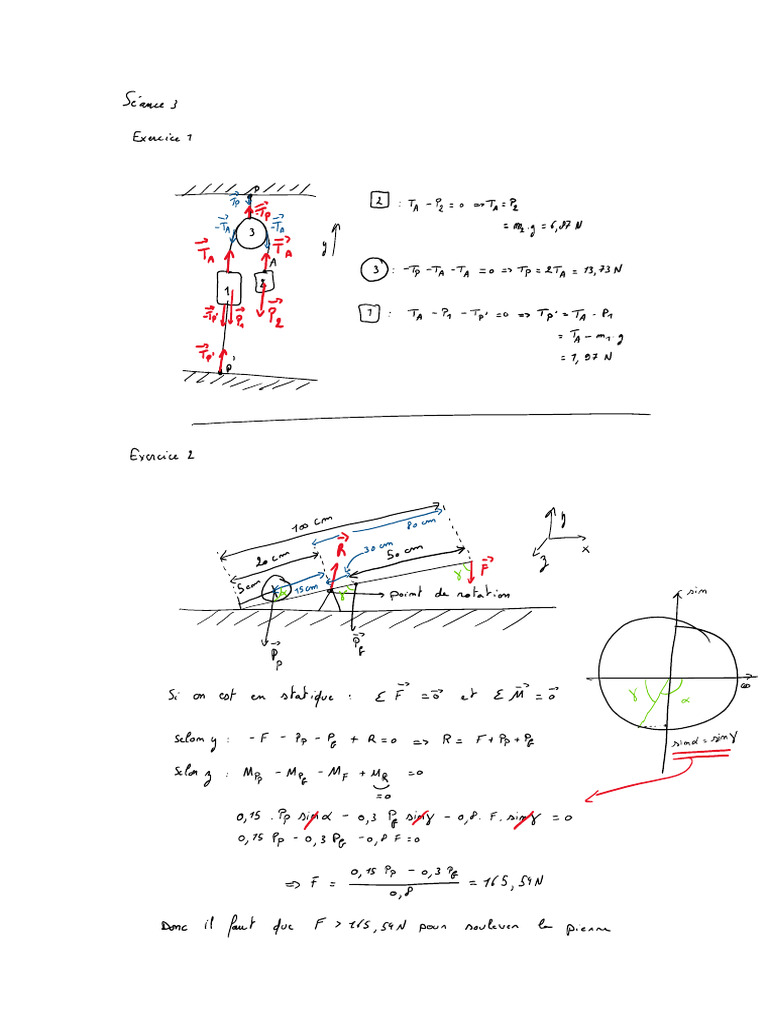 Séance 3
Exercice 1
P
Tp
-Tp
3
-TA
-TA
TA
TA
y
A
1
2
-Tp'
P1
P2
Tp'
P'
2 : TA - P2 = 0 => TA = P2
= m2.g = 6,87 N
3 : -Tp - TA - TA = 0 => Tp = 2TA = 13,73 N
1 : TA - P1 - Tp' = 0 => Tp' = TA - P1
= TA - m1.g
= 1,97 N
Exercice 2
100 cm
80 cm
R
20 cm
30 cm
50 cm
5 cm
15 cm
α
γ
γ
F
point de rotation
Pp
Pg
y
x
z
sin
γ
α
sinα = sinγ
Si on est en statique : Σ F = 0 et Σ M = 0
Selon y : - F - Pp - Pg + R = 0 => R = F + Pp + Pg
Selon z : MPp - MPg - MF + MR = 0
= 0
0,15 . Pp sinα - 0,3 Pg sinγ - 0,8 . F . sinγ = 0
0,15 Pp - 0,3 Pg - 0,8 F = 0
=> F = 0,15 Pp - 0,3 Pg / 0,8 = 165,54 N
Donc il faut que F > 165,54 N pour soulever la pierre